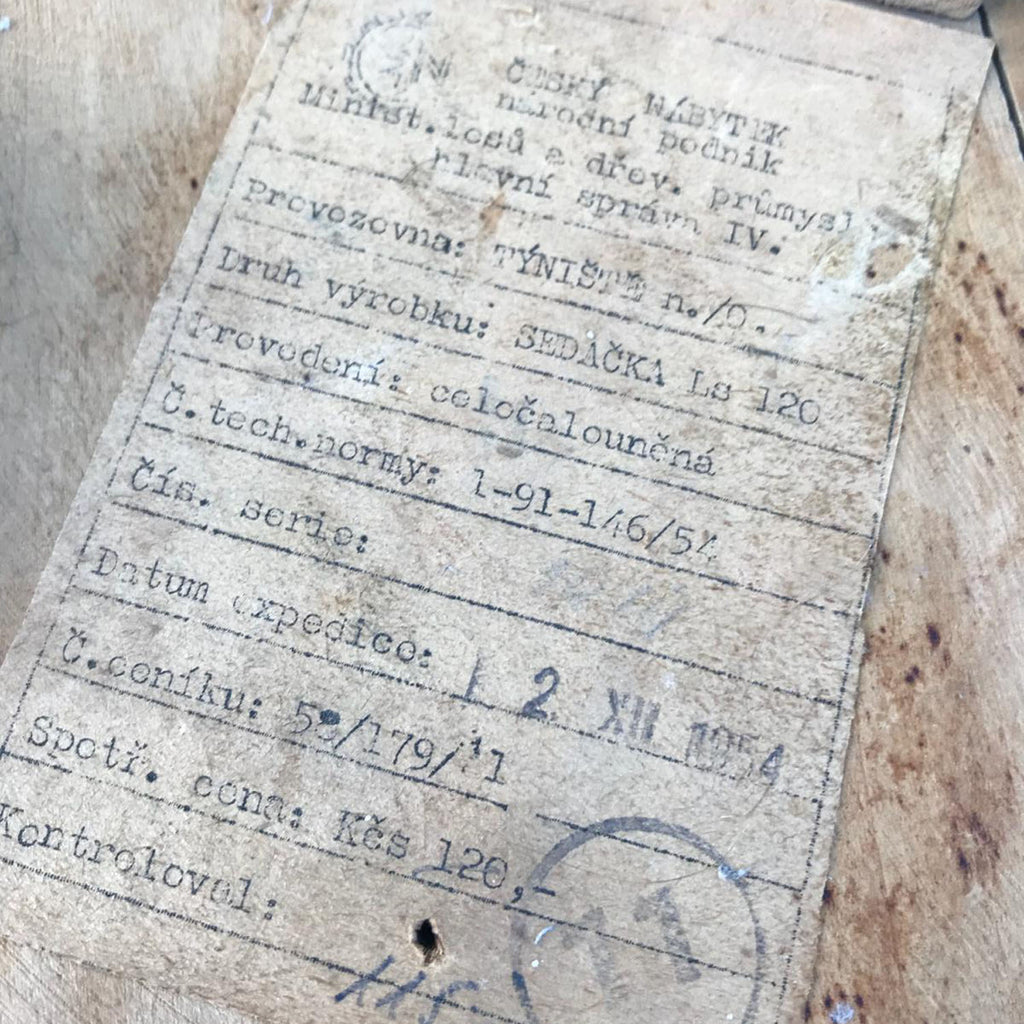 ČESKÝ NÁBYTEK
národní podnik
Minist.lesů a dřev. průmyslu
hlavní správa IV.
Provozovna: TÝNIŠTĚ n./O.
Druh výrobku: SEDAČKA Ls 120
Provedení: celočalouněná
Č.tech.normy: 1-91-146/54
Čís. serie:
Datum expedice: 2 XII 1954
Č.ceníku:
Spotř. cena: Kčs 120,-
Kontroloval:
11